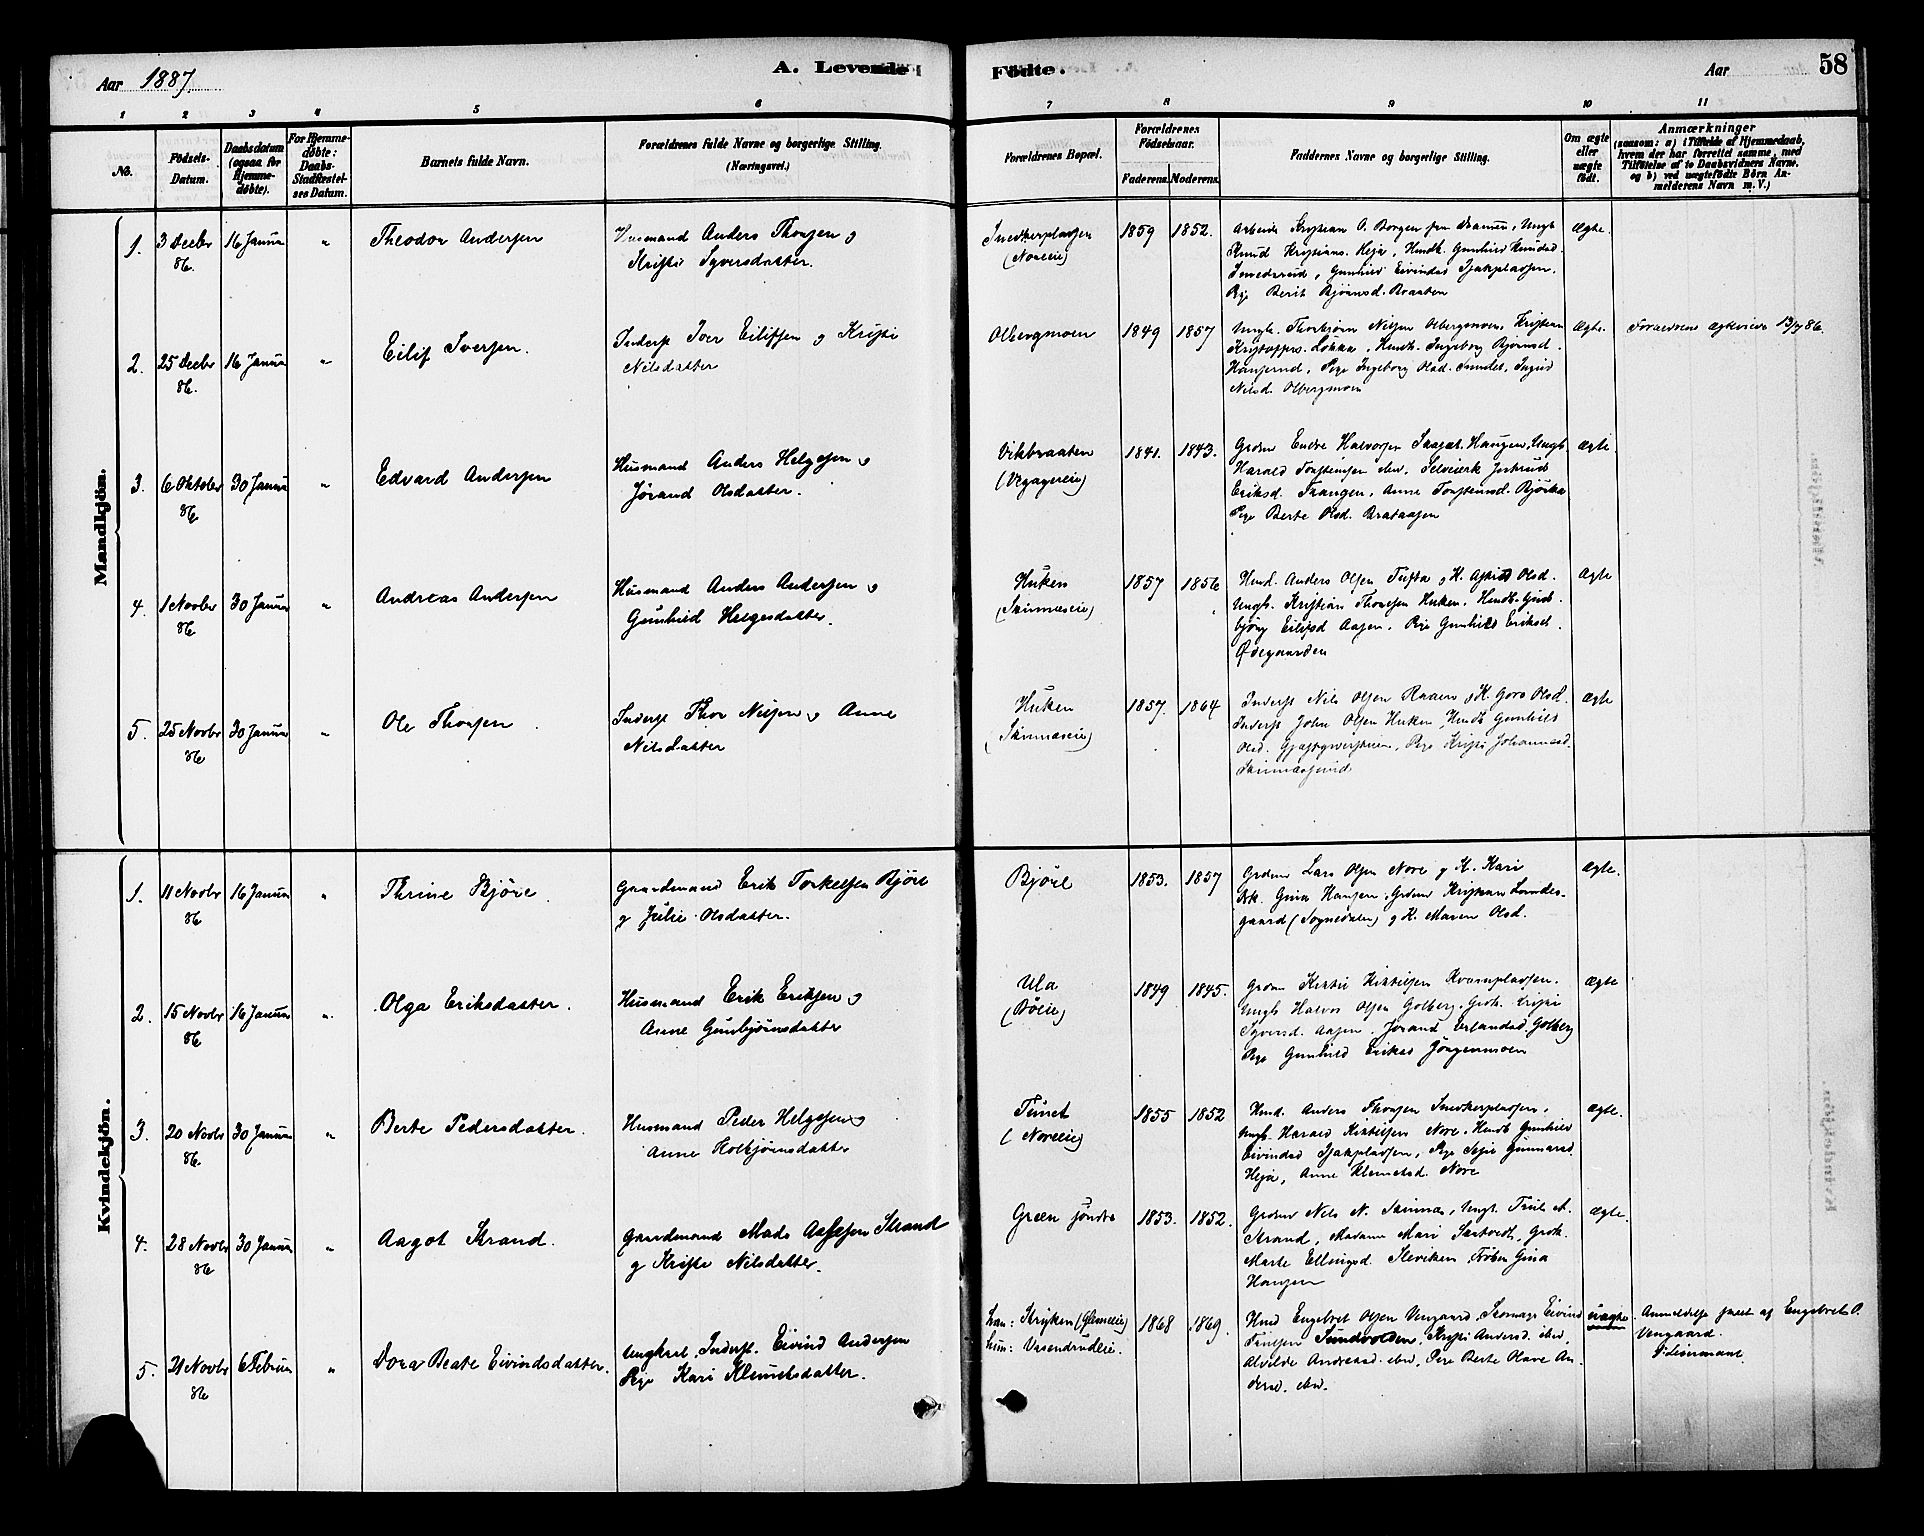 Aar 1887.
A. Levende Fødte.
Aar
58
1 2 3 4 5 6 7 8 9 10 11
No.
Fødsels-Datum.
Daabsdatum (ogsaa for Hjemmedøbte).
For Hjemmedøbte: Daabs-Stadfæstelses Datum.
Barnets fulde Navn.
Forældrenes fulde Navne og borgerlige Stilling. (Næringsvei.)
Forældrenes Bopæl.
Forældrenes Fødselsaar.
Faderens. Moderens.
Faddernes Navne og borgerlige Stilling.
Om ægte eller uægte født.
Anmærkninger
(saasom: a) i Tilfælde af Hjemmedaab, hvem der har forrettet samme, med Tilføielse af to Daabsvidners Navne, og b) ved uægtefødte Børn Anmelderens Navn m. V.)
Mandkjön.
1. 3 Decbr 86. 16 Januar " Theodor Andersen
Husmand Anders Thorsen og
Kristi Syversdatter.
Snedkerpladsen
(Noreeie)
1859 1852.
Arbeider Kristian O. Borgen fra Drammen, Ungk
Knud Kristians. Heja, Hustr. Gunhild Knudsd.
Smedsrud, Gunhild Eivindsd
Pige Berit Bjørnsd. Braaten
Ægte.
2. 25 Decbr 86. 16 Januar " Eilif Iversen.
Inderst Iver Eilifsen og Kristi
Nilsdatter
Olbergmoen
1849 1857
Ungk. Thorbjørn Nilsen Olbergmoen, Kristian
Kristoffers. Løkka, Hustr. Ingeborg Bjørnsd.
Pige Ingeborg Olsd. Ingrid
Nilsd. Olbergmoen
Ægte.
Forældrene ægteviede 13/7 86.
3. 6 Oktober 86 30 Januar " Edvard Andersen
Husmand Anders Helgesen og
Jørand Olsdatter.
Vikbraaten
1841. 1843.
Grdm Endre Halvorsen Haugen, Ungk
Harald Torstensen ibd. Jertrud
Eriksd. Trangen, Anne Torstensd. Bjørka
Pige Berte Olsd. Brataasen
Ægte
4. 1 Novbr 86 30 Januar " Andreas Andersen
Husmand Anders Andersen og
Gunhild Helgesdatter.
Huken
(Skinnæseie)
1857 1856
Husm. Anders Olsen Tufta og K. Astrid Olsd.
Ungk. Kristian Thorsen Huken, Hustr. Gud-
bjørg Eilifsd Aasen, Pige Gunhild Eriksd.
Ødegaarden
Ægte
5. 25 Novbr 86 30 Januar " Ole Thorsen
Inderst Thor Nilsen og Anne
Nilsdatter
Huken
(Skinnæseie)
1857. 1864
Inderst Nils Olsen Raaen og K. Goro Olsd.
Inderst John Olsen Huken, Hustr. Gunhild
Olsd. Pige Kristi Johannesd.
Ægte
Kvindekjön.
1. 11 Novbr 86 16 Januar " Thrine Bjøre.
Gaardmand Erik Torkelsen Bjøre
og Julie Olsdatter.
Bjøre
1853. 1857
Grdm Lars Olsen Nore og K. Kari
Gina Hansen, Grdm Kristian Landes-
gaard (Sognedalen) og K. Maren Olsd.
Ægte.
2. 15 Novbr 86 16 Januar " Olga Eriksdatter.
Husmand Erik Eriksen og
Anne Gunbjørnsdatter
Ula
(Bøeie)
1849 1845.
Grdm Kittil Kittilsen Kvarnpladsen.
Ungk Halvor Olsen Golberg, Grdk. Kristi
Syversd. Aasen, Jørand Erlandsd. Golberg
Pige Gunhild Eriksd Jørgenmoen
Ægte
3. 20 Novbr 86 30 Januar " Berte Pedersdatter.
Husmand Peder Helgesen og
Anne Holbjørnsdatter
Tunet
(Noreeie)
1855 1852
Husm. Anders Thorsen Snedkerpladsen,
Ungk. Harald Kittilsen Nore, Hustr Gunhild
Eivindsd Pige Sigri Gunnarsd.
Heja, Anne Klemetsd. Nore
Ægte.
4. 28 Novbr 86 30 Januar " Aagot Strand.
Gaardmand Mads Strand
og Kristi Nilsdatter.
Green søndre
1853. 1852.
Grdm Nils N. Skinnæs, Ungk. Truls A.
Strand, Madame Mari Sartveth, Grdk.
Marte Ellingsd. Kleviken, Frøken Gina
Hansen
Ægte.
5. 21 Novbr 86 6 Februar " Dora Beate Eivindsdatter.
Ungkarl. Inderst. Eivind Andersen
Pige Kari Klemetsdatter.
han: Stryken
hun: Vasendrudeie.
1868 1869.
Husm Engebret Olsen Vengaard, Skomager Eivind
Sundvolden, Kristi Andersd. ibid,
Alvilde Andersd. ibid, Pige Berte Olave An-
dersd. ibid.
Uægte
Anmeldelse skeet af Engebret O.
Vengaard.